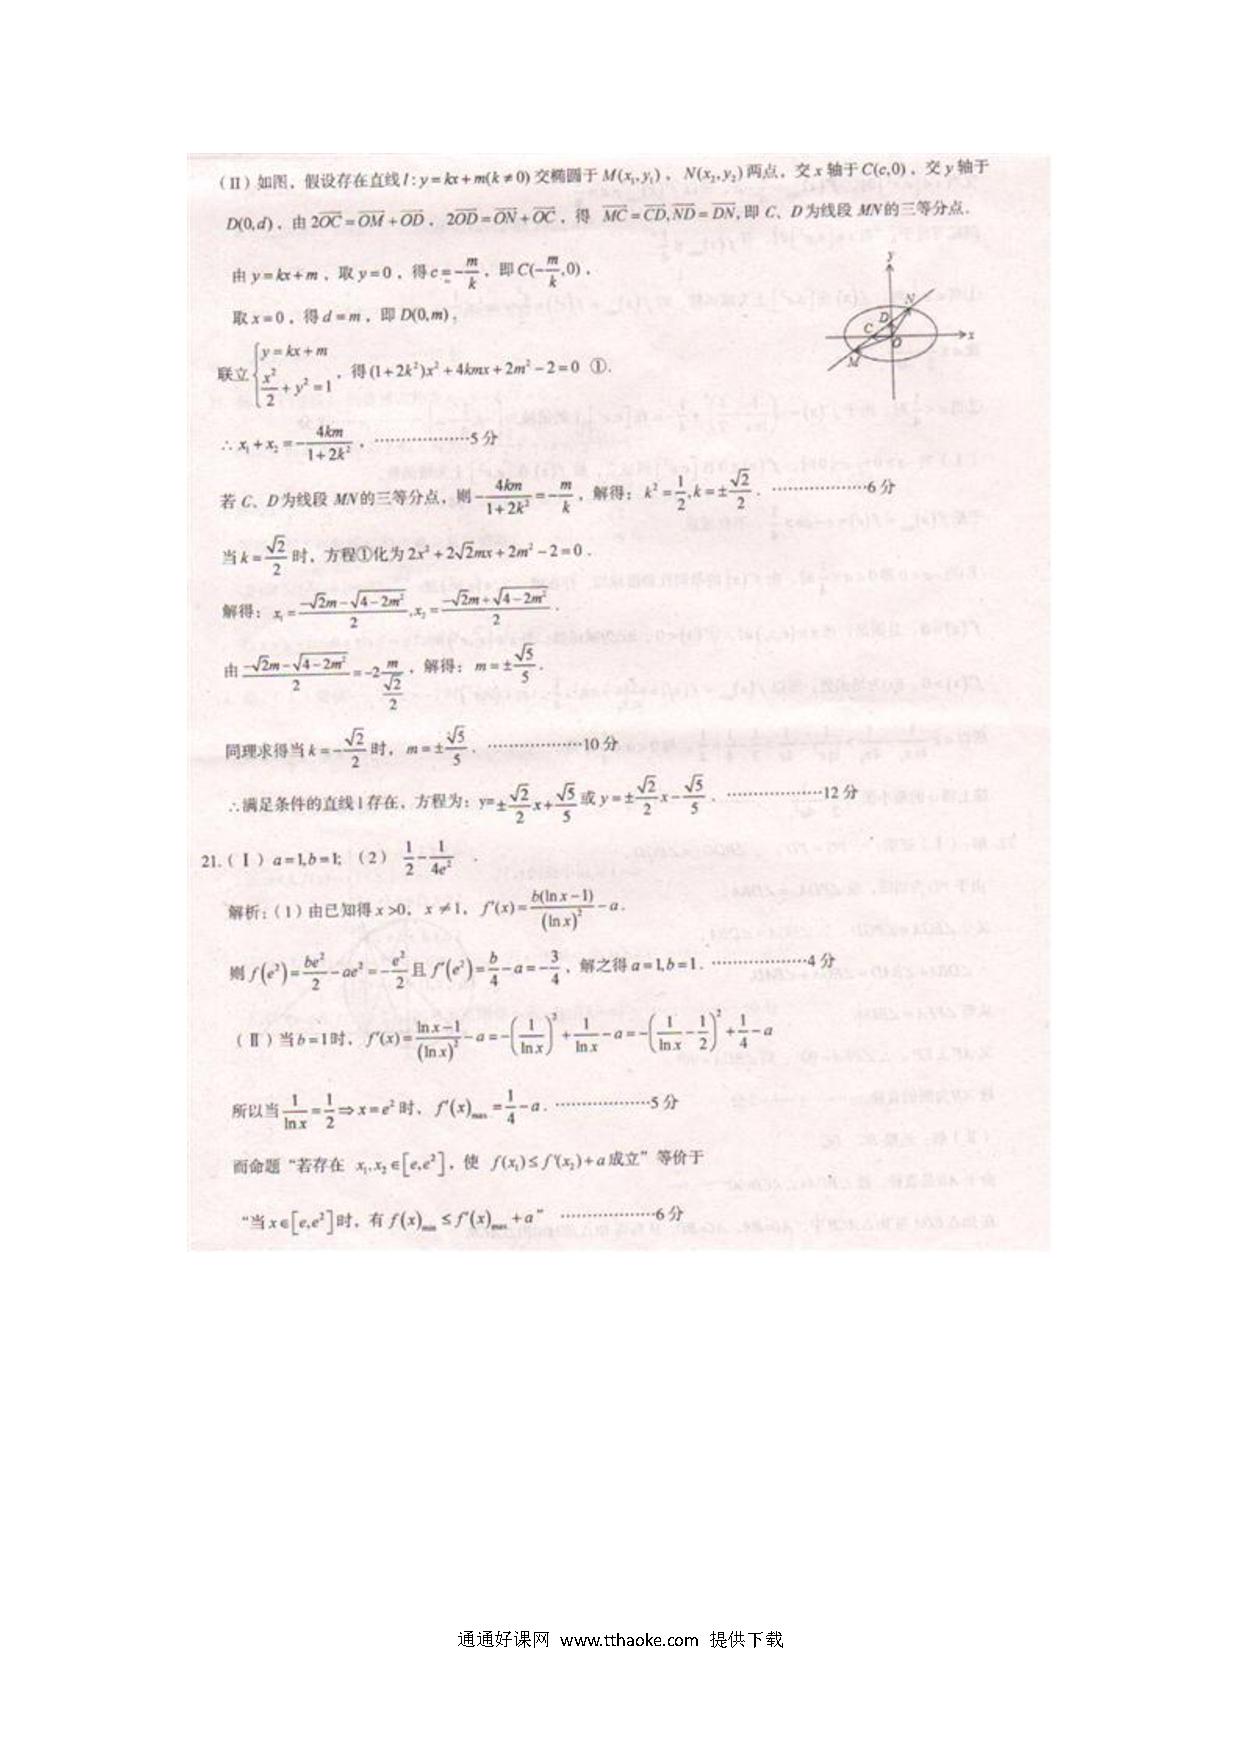 (Ⅱ)如图，假设存在直线l:y=kx+m(k≠0)交椭圆于M(x₁,y₁)，N(x₂,y₂)两点，交x轴于C(c,0)，交y轴于
D(0,d)，由2OC=OM+OD，2OD=ON+OC，得 MC=CD,ND=DN,即C、D为线段MN的三等分点．
由y=kx+m，取y=0，得c=-m/k，即C(-m/k,0)，
取x=0，得d=m，即D(0,m)，
联立{y=kx+m, x²/2+y²=1，得(1+2k²)x²+4kmx+2m²-2=0 ①.
∴x₁+x₂=-4km/(1+2k²)，………………5分
若C、D为线段MN的三等分点，则-4km/(1+2k²)=-m/k，解得：k²=1/2,k=±√2/2．………………6分
当k=√2/2时，方程①化为2x²+2√2mx+2m²-2=0．
解得：x₁=(-√2m-√(4-2m²))/2,x₂=(-√2m+√(4-2m²))/2．
由(-√2m-√(4-2m²))/2=-2m/(√2/2)，解得：m=±√5/5．
同理求得当k=-√2/2时，m=±√5/5．………………10分
∴满足条件的直线l存在，方程为：y=±√2/2x+√5/5或y=±√2/2x-√5/5．………………12分
y
N
D
C
O
x
M
21.(Ⅰ)a=1,b=1;（2）1/2-1/(4e²)．
解析:(1)由已知得x>0，x≠1，f′(x)=b(lnx-1)/(lnx)²-a．
则f(e²)=be²/2-ae²=-e²/2且f′(e²)=b/4-a=-3/4，解之得a=1,b=1．………………4分
(Ⅱ)当b=1时，f′(x)=(lnx-1)/(lnx)²-a=-(1/lnx)²+1/lnx-a=-(1/lnx-1/2)²+1/4-a
所以当1/lnx=1/2⇒x=e²时，f′(x)max=1/4-a．………………5分
而命题“若存在 x₁,x₂∈[e,e²]，使 f(x₁)≤f′(x₂)+a成立”等价于
“当x∈[e,e²]时，有f(x)min≤f′(x)max+a” ………………6分
通通好课网 www.tthaoke.com 提供下载